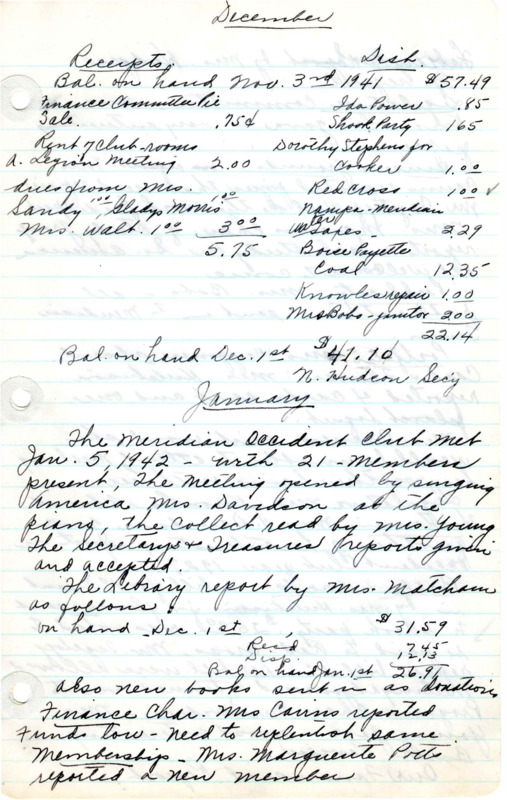 December
Receipts: Disb.
Bal. on hand Nov. 3rd 1941 $57.49
Finance Committee Pie Ida Power .85
Sale. .75¢ Shook Party 165
Rent of Club-rooms Dorothy Stephens for
A. Legion Meeting 2.00 Cooker 1.00
dues from Mrs. Red Cross 1.00
Sandy 1.00, Gladys Morris 1.00 Nampa-Meridian
Mrs. Walt. 1.00 3.00 Water 2.29
5.75 Boise Payette
Coal 12.35
Knowles repair 1.00
Mrs Bobs-janitor 2.00
22.14
Bal. on hand Dec. 1st $41.10
N. Hudson Sec'y
January
The Meridian Occident Club met
Jan. 5, 1942 - with 21 - members
present, The meeting opened by singing
America Mrs. Davidson at the
piano, the Collect read by Mrs. Young
The Secretarys & Treasures reports given
and accepted.
The Library report by Mrs. Matcham
as follows:
on hand Dec. 1st, $31.59
Recd 7.45
Disp. 12.13
Bal on hand Jan. 1st 26.91
Also new books sent in as donations
Finance Char. Mrs Cairns reported
Funds low - need to replenish same
Membership - Mrs. Marguerite Potts
reported a new member